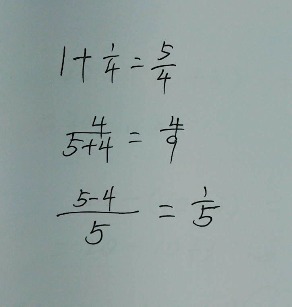 1+1/4=5/4
4/(5+4)=4/9
(5-4)/5=1/5